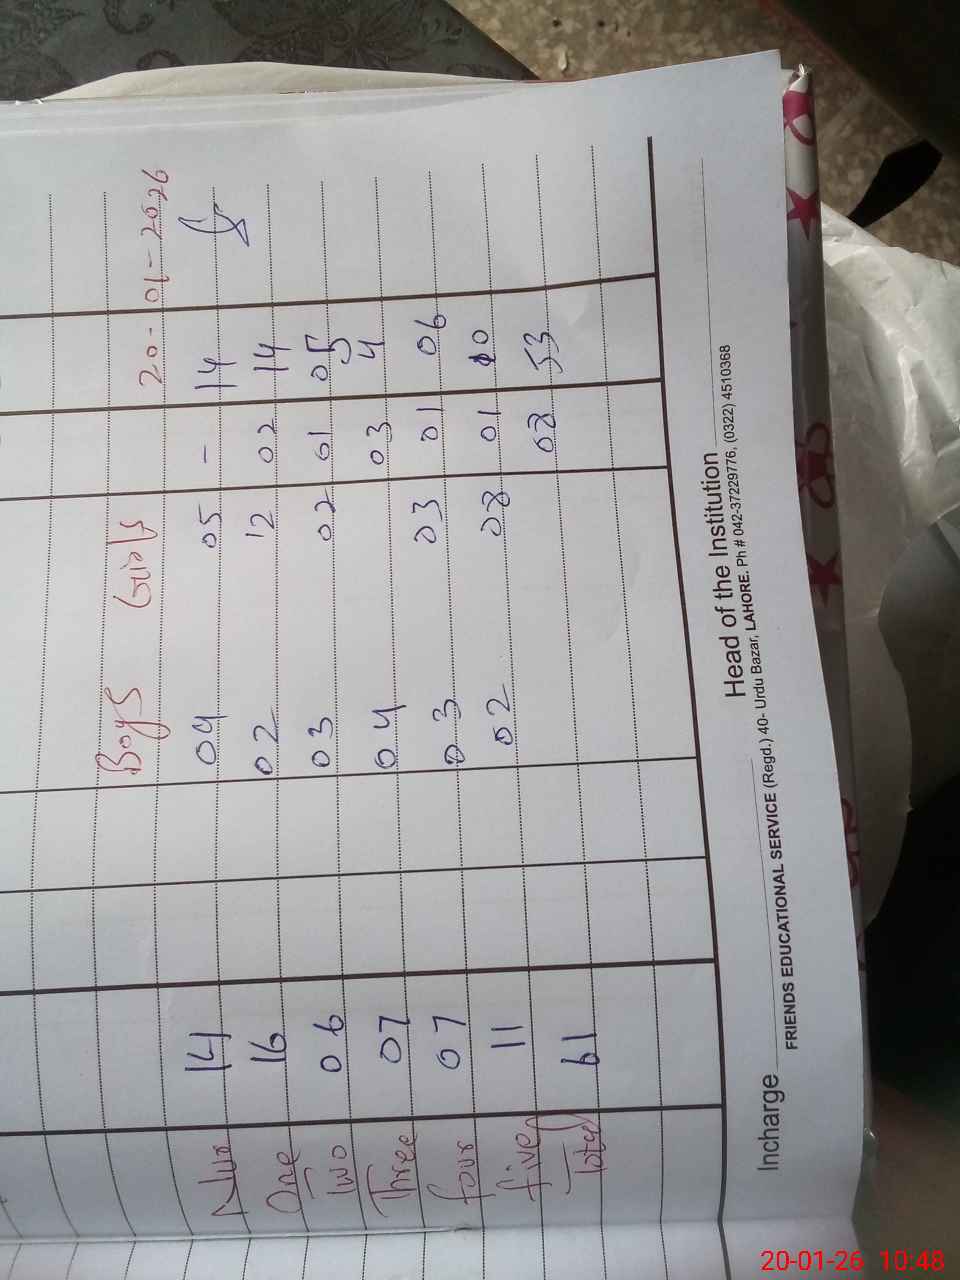 20-01-2026
Boys Girls
Nur 14 04 05 - 14
One 16 02 12 02 14
Two 06 03 02 01 05
Three 07 04 03 4
four 07 03 03 01 06
five 11 02 08 01 10
Total 61 08 53
Incharge Head of the Institution
FRIENDS EDUCATIONAL SERVICE (Regd.) 40- Urdu Bazar, LAHORE. Ph # 042-37229776, (0322) 4510368
20-01-26 10:48